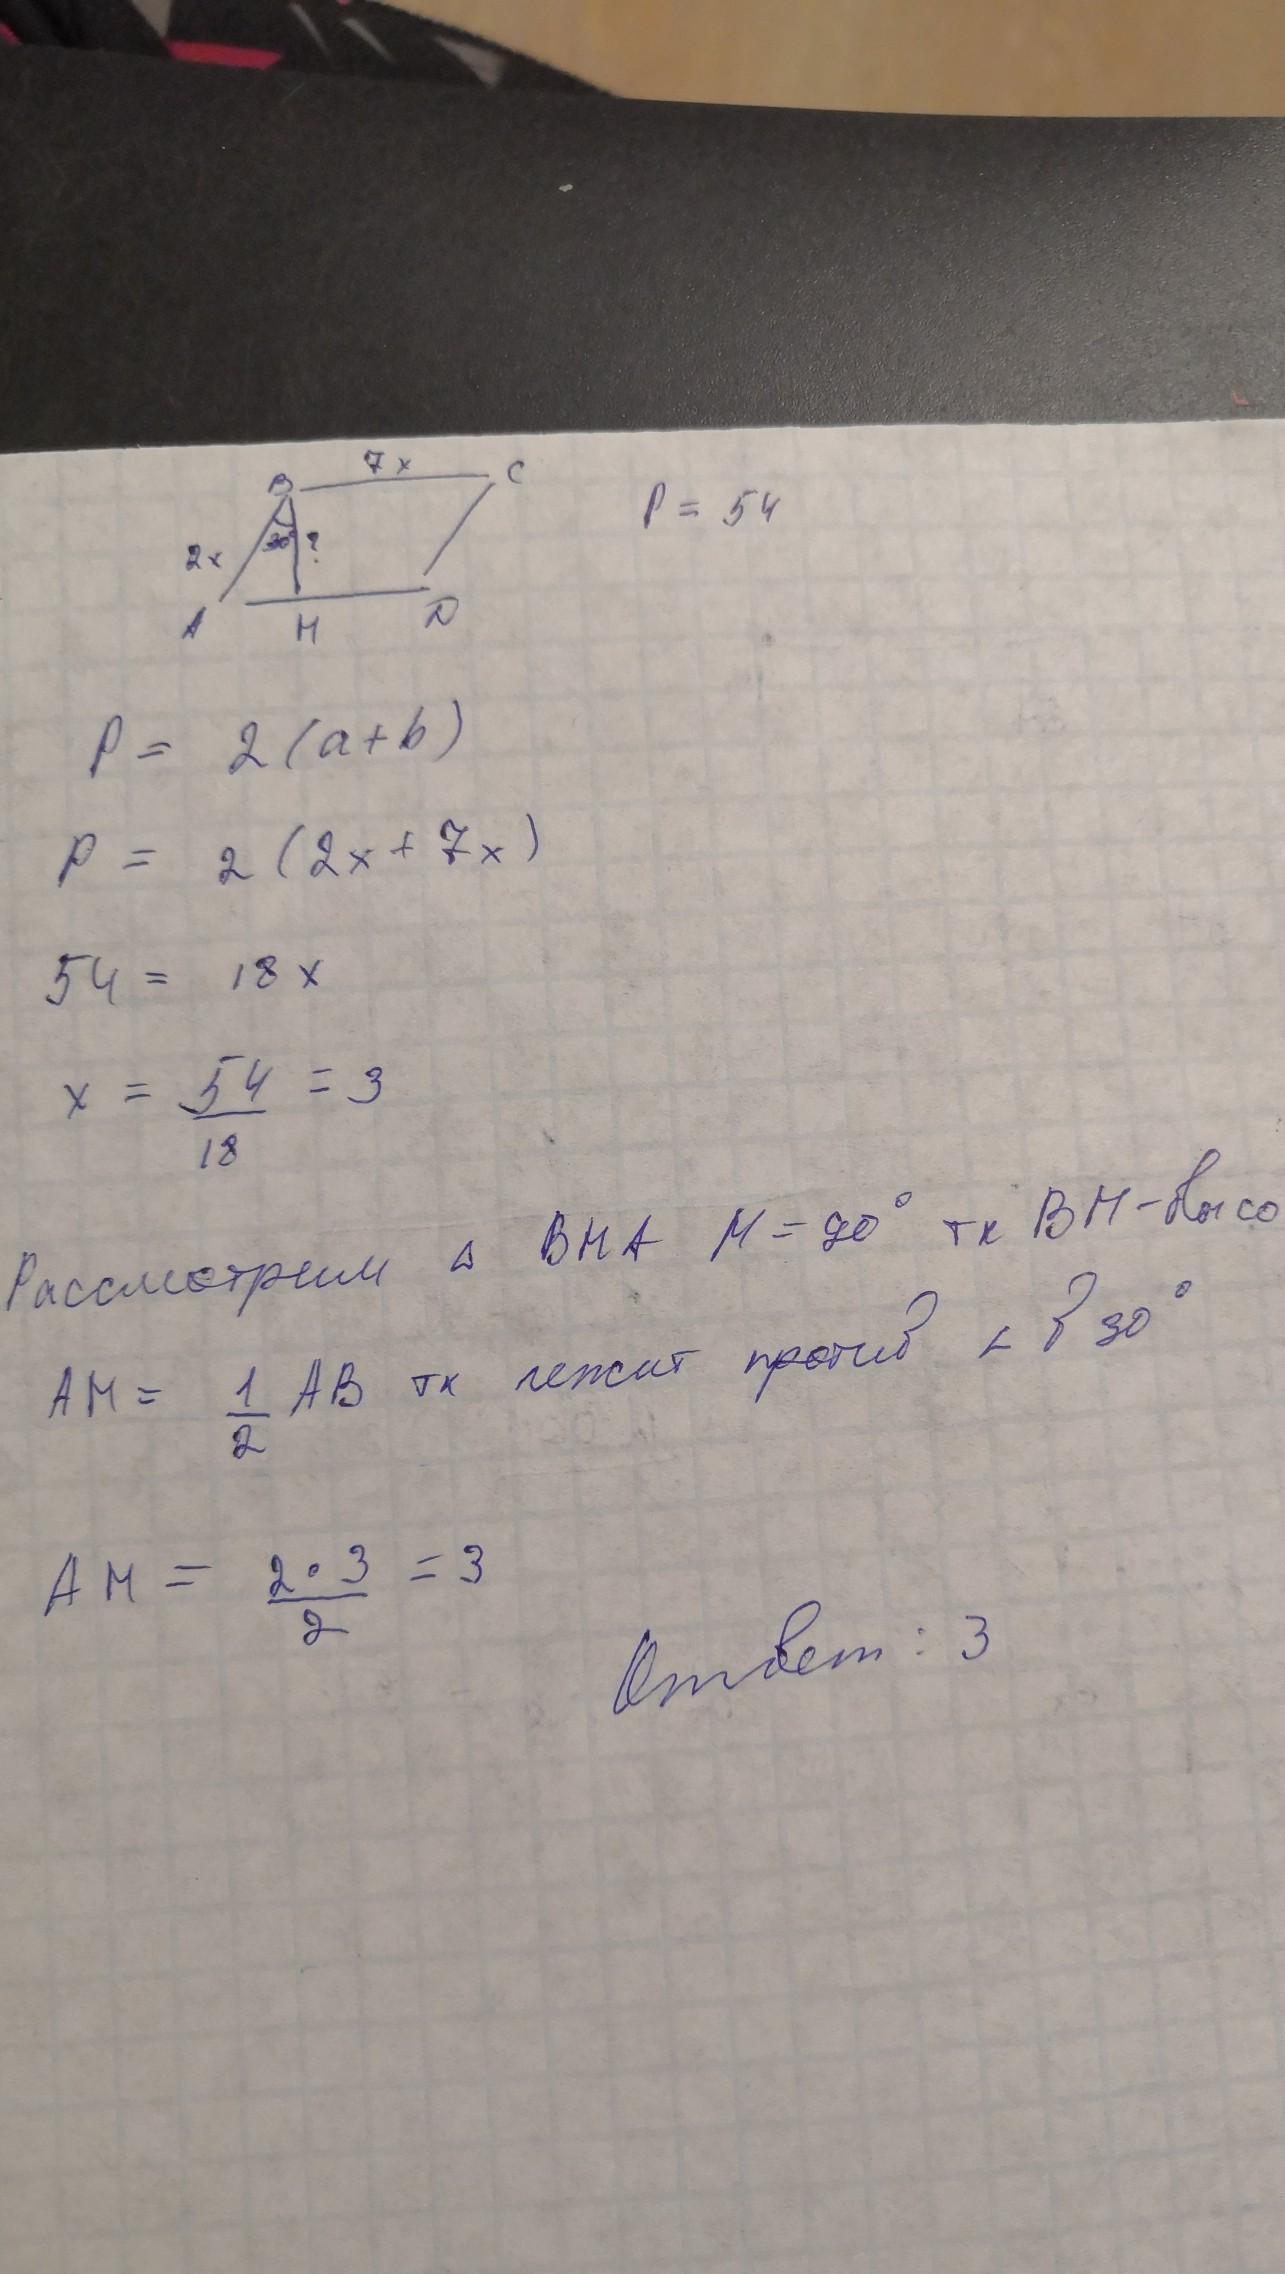 7x
B
C
P = 54
2x
30°
?
A
M
D
P = 2(a+b)
P = 2(2x+7x)
54 = 18x
x = 54/18 = 3
Рассмотрим △ BMA M = 90° тк BM-высо
AM = 1/2 AB тк лежит против ∠ в 30°
AM = 2·3/2 = 3
Ответ: 3